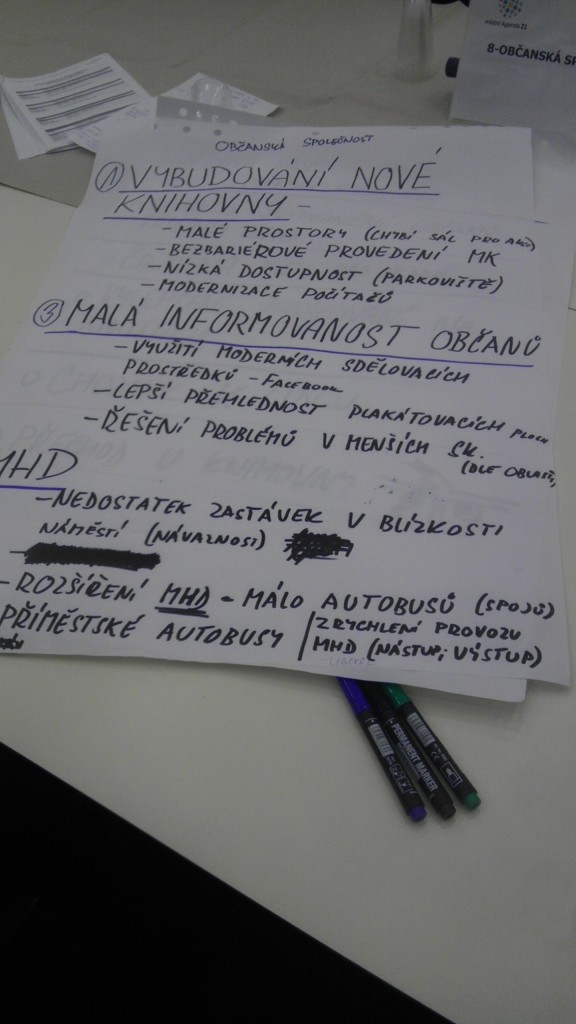 místní Agenda 21
8-OBČANSKÁ SP
OBČANSKÁ SPOLEČNOST
1 VYBUDOVÁNÍ NOVÉ
KNIHOVNY -
- MALÉ PROSTORY (CHYBÍ SÁL PRO AKCI)
- BEZBARIÉROVÉ PROVEDENÍ MK
- NÍZKÁ DOSTUPNOST (PARKOVIŠTĚ)
- MODERNIZACE POČÍTAČŮ
3 MALÁ INFORMOVANOST OBČANŮ
- VYUŽITÍ MODERNÍCH SDĚLOVACÍCH
PROSTŘEDKŮ - FACEBOOK
- LEPŠÍ PŘEHLEDNOST PLAKÁTOVACÍCH PLOCH
- ŘEŠENÍ PROBLÉMŮ V MENŠÍCH SK.
(DLE OBLASTÍ)
MHD
- NEDOSTATEK ZASTÁVEK V BLÍZKOSTI
NÁMĚSTÍ (NÁVAZNOST)
- ROZŠÍŘENÍ MHD - MÁLO AUTOBUSŮ (SPOJŮ)
PŘÍMĚSTSKÉ AUTOBUSY / ZRYCHLENÍ PROVOZU
MHD (NÁSTUP, VÝSTUP)
PERMANENT MARKER